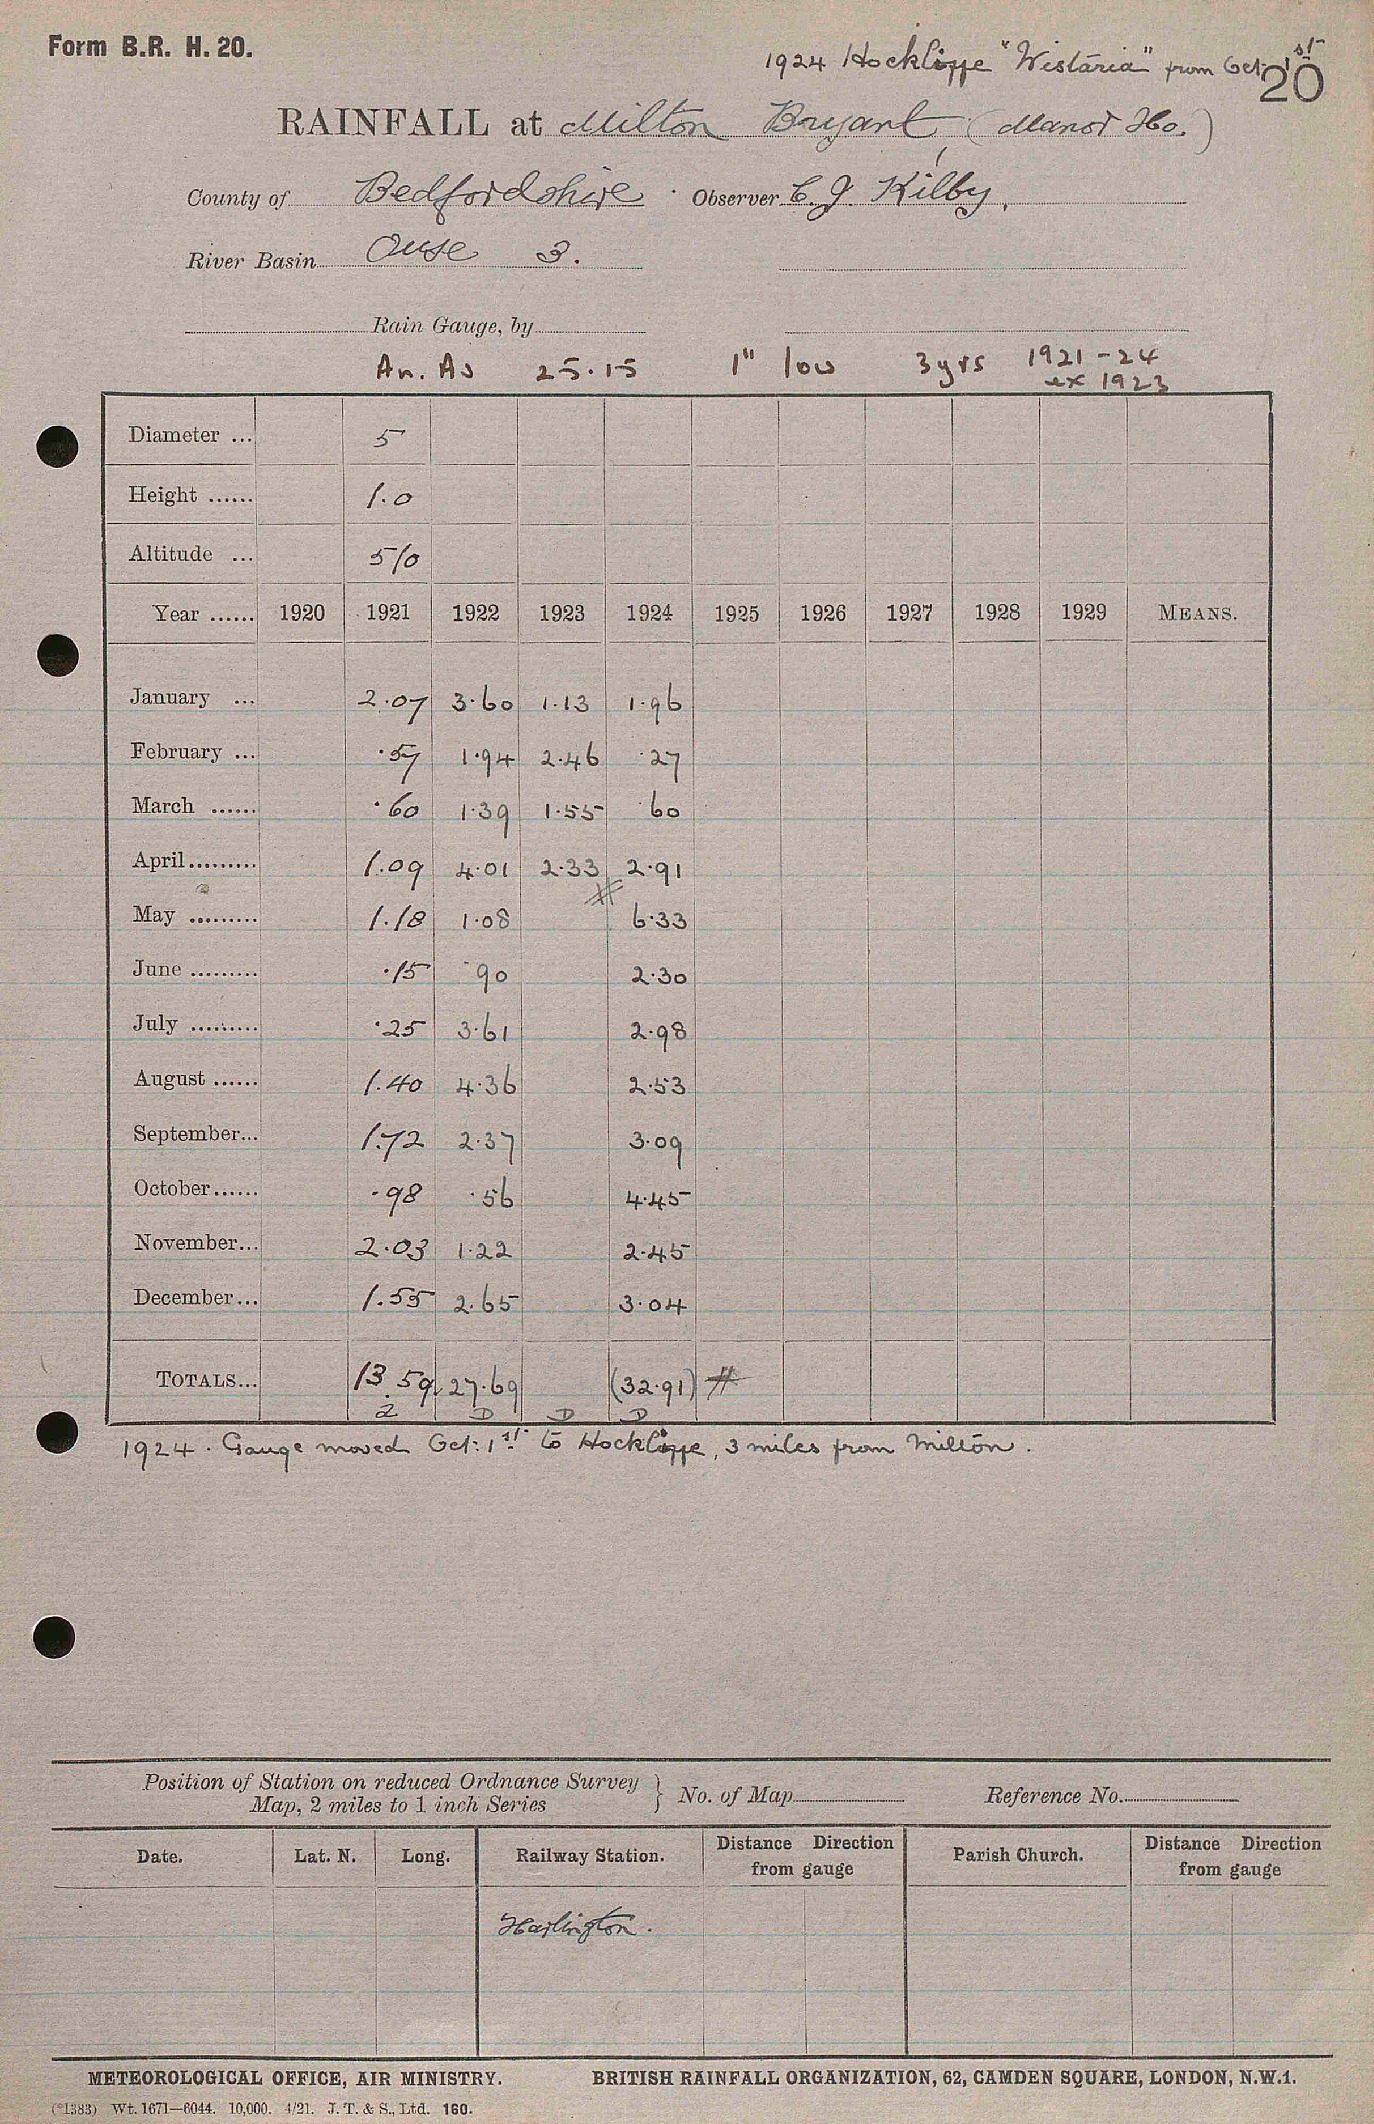 Form B.R. H. 20.
1924 Hockliffe "Wistaria" from Oct. 1st
20
RAINFALL at Milton Bryant, (Manor Ho.)
County of Bedfordshire . Observer C. J. Kilby,
River Basin Ouse 3.
Rain Gauge, by
An. Av 25.15 1" low 3 yrs 1921-24
ex 1923
Diameter ... 5
Height ...... 1.0
Altitude ... 510
Year ...... 1920 1921 1922 1923 1924 1925 1926 1927 1928 1929 MEANS.
January ... 2.07 3.60 1.13 1.96
February ... .57 1.94 2.46 .27
March ...... .60 1.39 1.55 .60
April......... 1.09 4.01 2.33 2.91
May ......... 1.18 1.08 # 6.33
June ......... .15 .90 2.30
July ......... .25 3.61 2.98
August ...... 1.40 4.36 2.53
September... 1.72 2.37 3.09
October...... .98 .56 4.45
November... 2.03 1.22 2.45
December... 1.55 2.65 3.04
TOTALS... 13.59 27.69 (32.91) #
2 D D D
1924. Gauge moved Oct: 1st to Hockliffe, 3 miles from Milton.
Position of Station on reduced Ordnance Survey
Map, 2 miles to 1 inch Series } No. of Map Reference No.
Date. Lat. N. Long. Railway Station. Distance Direction from gauge Parish Church. Distance Direction from gauge
Harlington.
METEOROLOGICAL OFFICE, AIR MINISTRY. BRITISH RAINFALL ORGANIZATION, 62, CAMDEN SQUARE, LONDON, N.W.1.
(*1383) Wt. 1671—6044. 10,000. 4/21. J. T. & S., Ltd. 160.